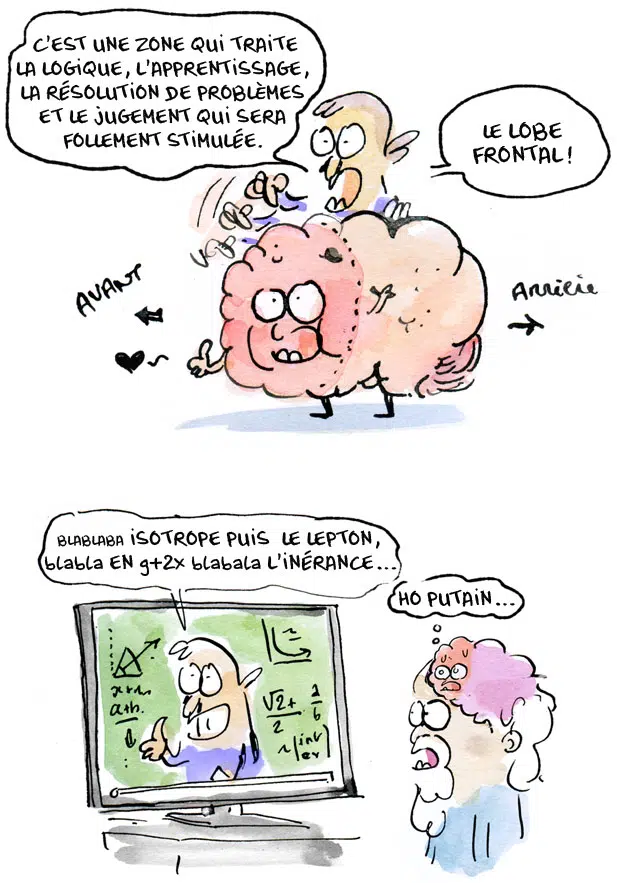 C'EST UNE ZONE QUI TRAITE
LA LOGIQUE, L'APPRENTISSAGE,
LA RÉSOLUTION DE PROBLÈMES
ET LE JUGEMENT QUI SERA
FOLLEMENT STIMULÉE.
LE LOBE
FRONTAL!
AVANT
BLABLABA ISOTROPE PUIS LE LEPTON,
blabla EN g+2x blabala L'INÉRANCE...
HO PUTAIN...
a+h.
√2+
2